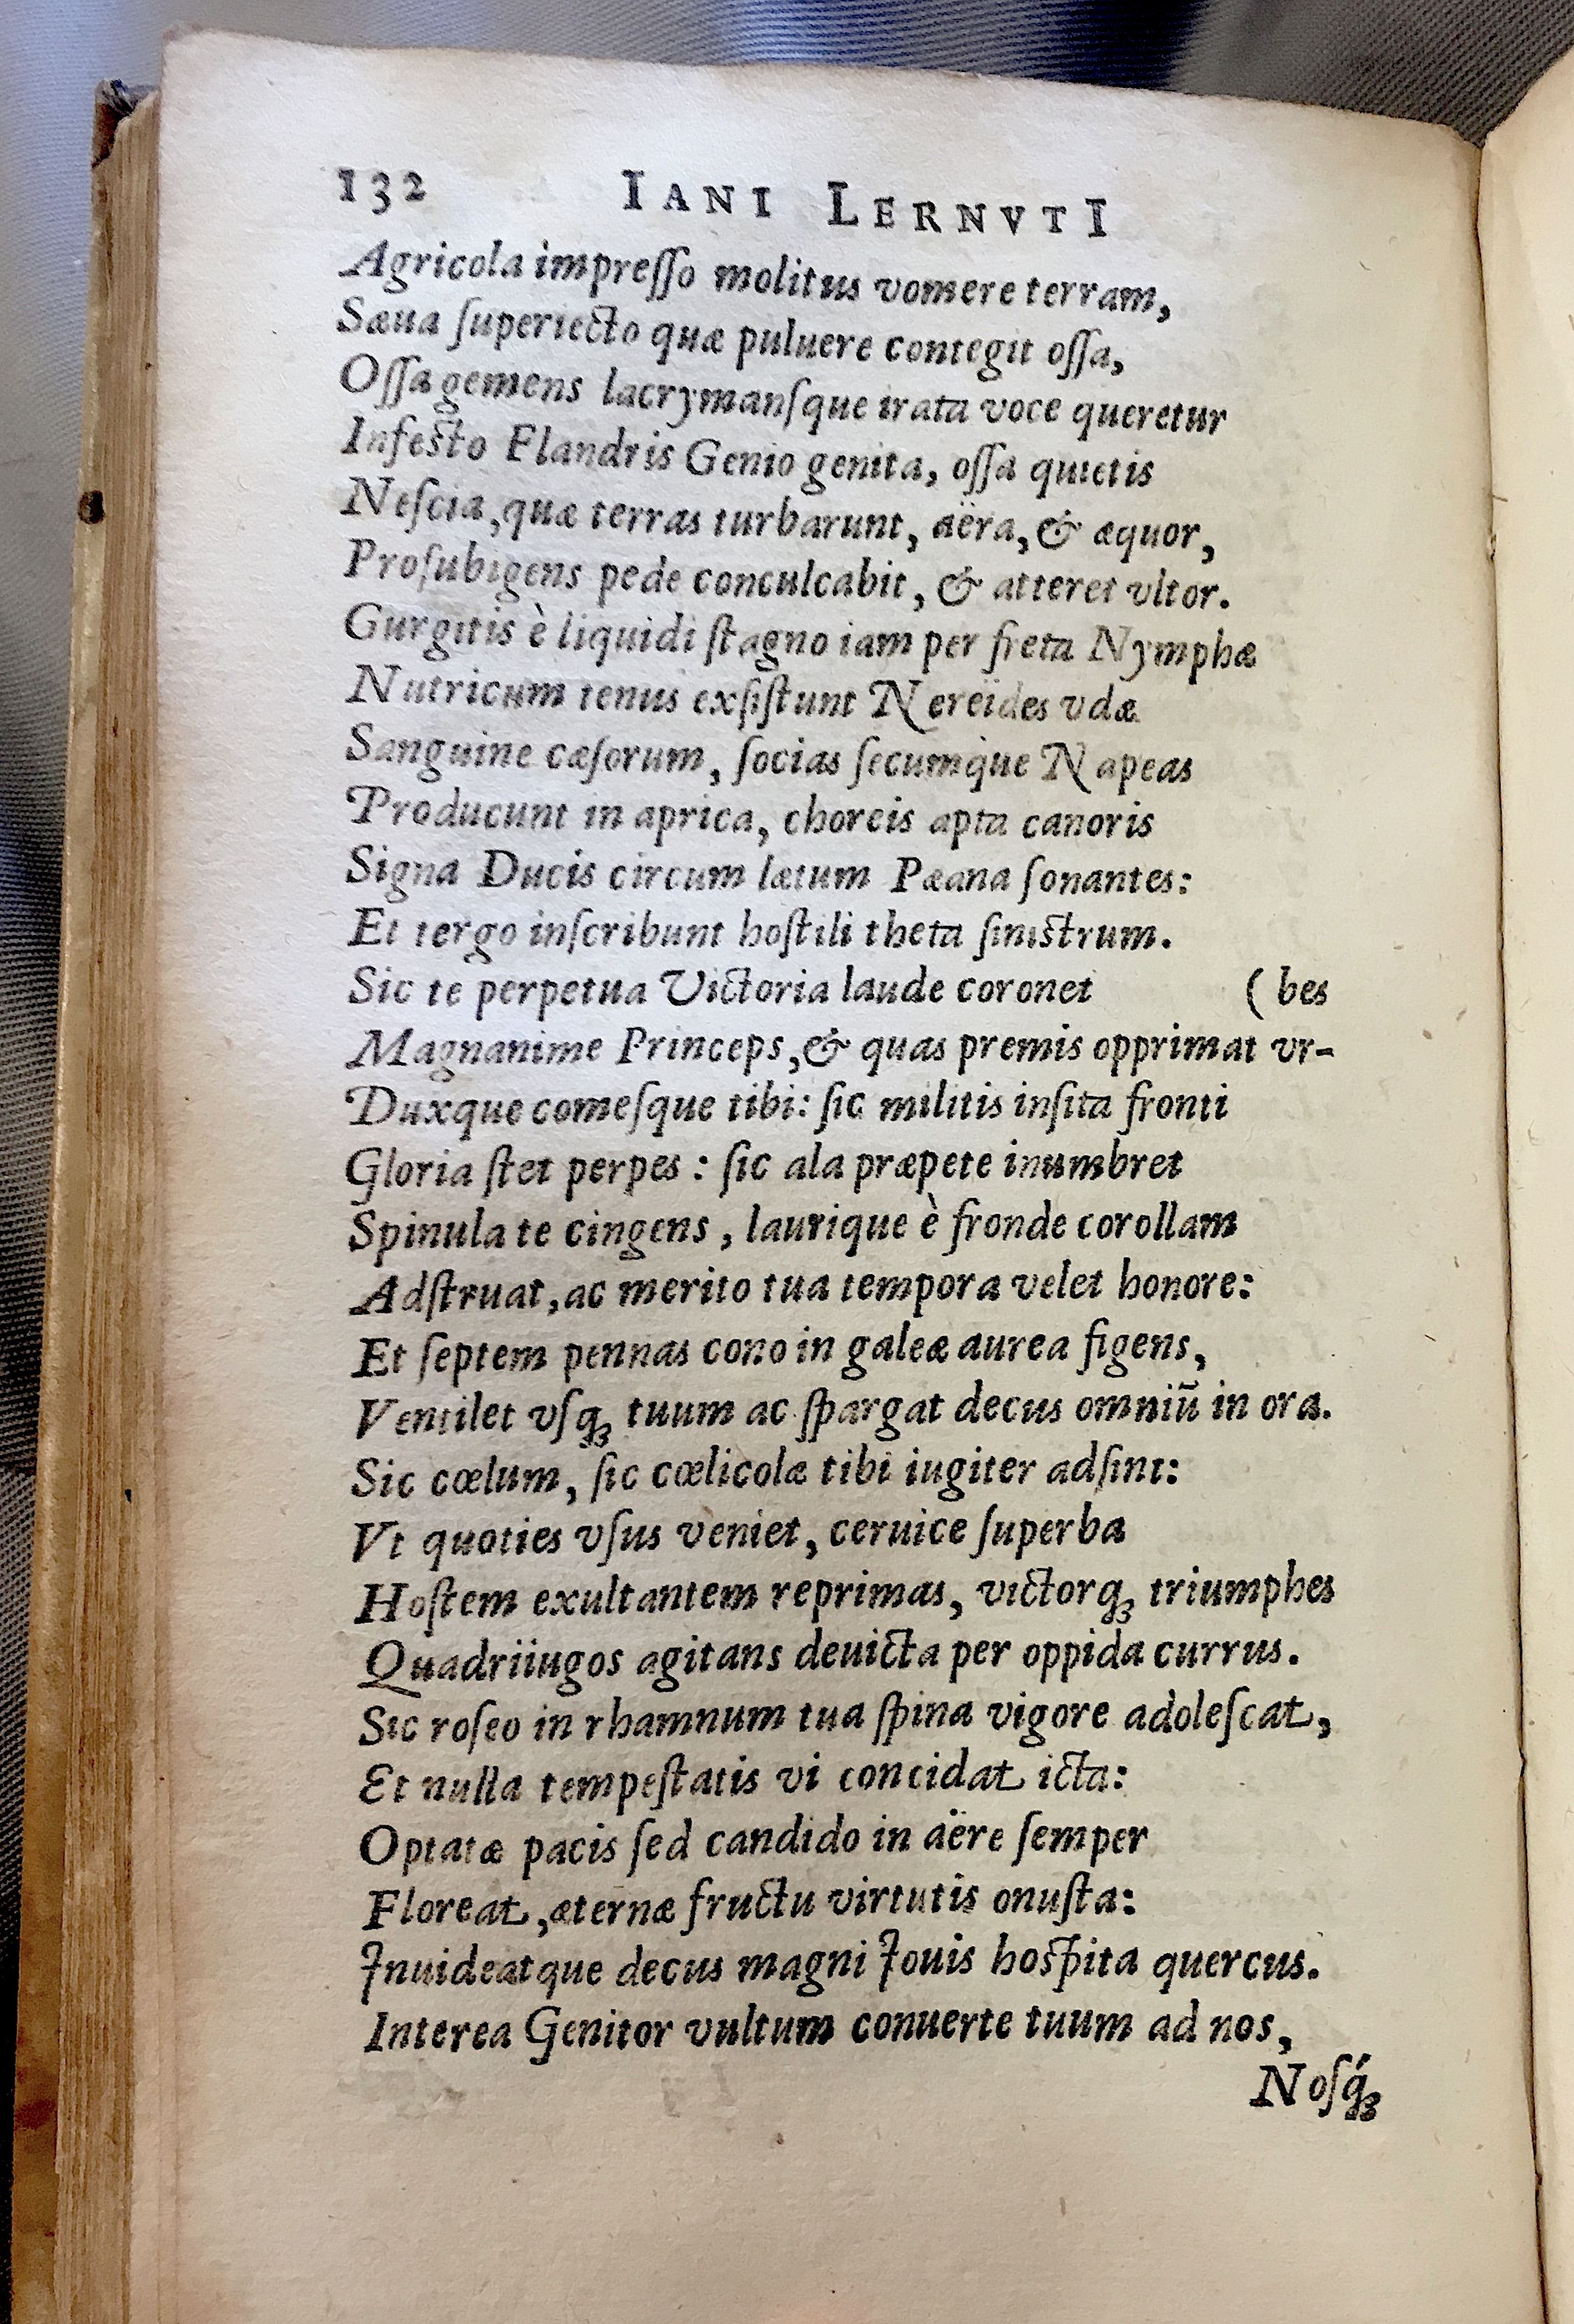 132 IANI LERNVTI
Agricola impreſſo molitus vomere terram,
Sæua ſuperiecto quæ puluere contegit oſſa,
Oſſa gemens lacrymanſque irata voce queretur
Infesto Flandris Genio genita, oſſa quietis
Neſcia, quæ terras turbarunt, aëra, & æquor,
Proſubigens pede conculcabit, & atteret vltor.
Gurgitis è liquidi ſtagno iam per freta Nymphæ
Nutricum tenus exſiſtunt Nereïdes vdæ
Sanguine cæſorum, ſocias ſecumque Napeas
Producunt in aprica, choreis apta canoris
Signa Ducis circum lætum Pæana ſonantes:
Et tergo inſcribunt hoſtili theta ſinistrum.
Sic te perpetua Victoria laude coronet (bes
Magnanime Princeps, & quas premis opprimat vr-
Duxque comeſque tibi: ſic militis inſita fronti
Gloria ſtet perpes: ſic ala præpete inumbret
Spinula te cingens, laurique è fronde corollam
Adſtruat, ac merito tua tempora velet honore:
Et ſeptem pennas cono in galeæ aurea figens,
Ventilet vſqꝫ tuum ac ſpargat decus omniū in ora.
Sic cœlum, ſic cœlicolæ tibi iugiter adſint:
Vt quoties vſus veniet, ceruice ſuperba
Hoſtem exultantem reprimas, victorqꝫ triumphes
Quadriiugos agitans deuicta per oppida currus.
Sic roſeo in rhamnum tua ſpina vigore adoleſcat,
Et nulla tempeſtatis vi concidat icta:
Optatæ pacis ſed candido in aëre ſemper
Floreat, æternæ fructu virtutis onuſta:
Inuideatque decus magni Iouis hospita quercus.
Interea Genitor vultum conuerte tuum ad nos,
Noſq́ꝫ